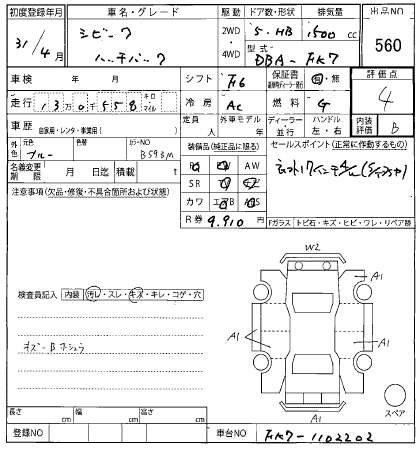 初度登録年月 車名・グレード 駆動 ドア数・形状 排気量 出品NO
31/4月 シビック 2WD 5・HB 1500 cc 560
ハッチバック 4WD 型式 DBA-FK7
車検 年 月 シフト F6 保証書 有・無 評価点
走行 13万0千558 キロ マイル 冷房 AC 燃料 G 4
車歴 自家用・レンタ・事業用( ) 定員 人 外車モデル 年式 ディーラー 並行 ハンドル 左・右 内装評価 B
外色 元色 ブルー 色替 カラーNO B593M 装備品(純正品に限る) セールスポイント(正常に作動するもの)
名義変更期限 月 日迄 積載 t AW
注意事項(欠品・修復・不具合箇所および状態) SR
カワ
R券 9,910 円 Fガラス トビ石・キズ・ヒビ・ワレ・リペア跡
W2
A1 A1
検査員記入 内装 汚レ・スレ・キズ・キレ・コゲ・穴
A1 A1
キズ-B
スペア
長さ cm 幅 cm 高さ cm A1
登録NO 車台NO FK7-1102202